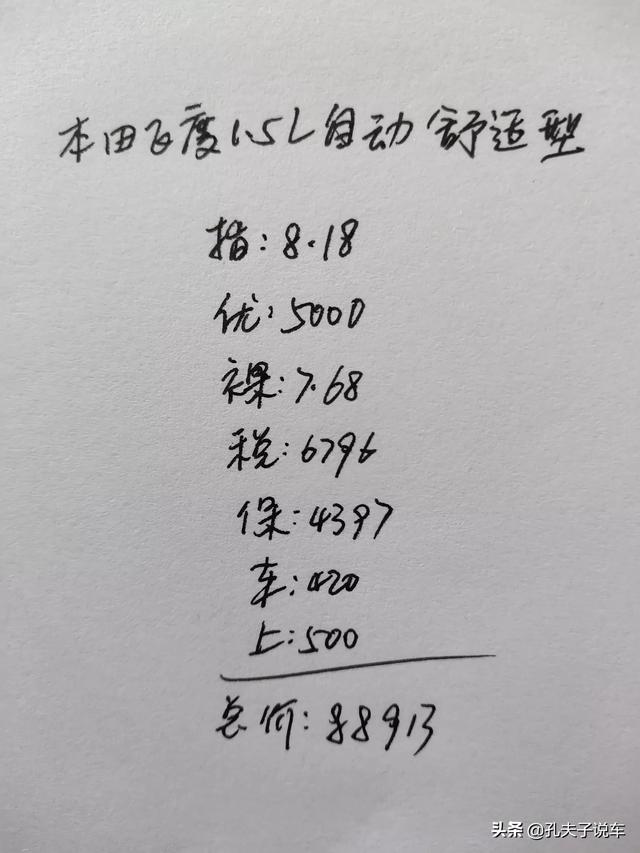 本田飞度1.5L自动舒适型
指:8.18
优:5000
裸:7.68
税:6796
保:4397
车:420
上:500
总价:88913
头条 @孔夫子说车